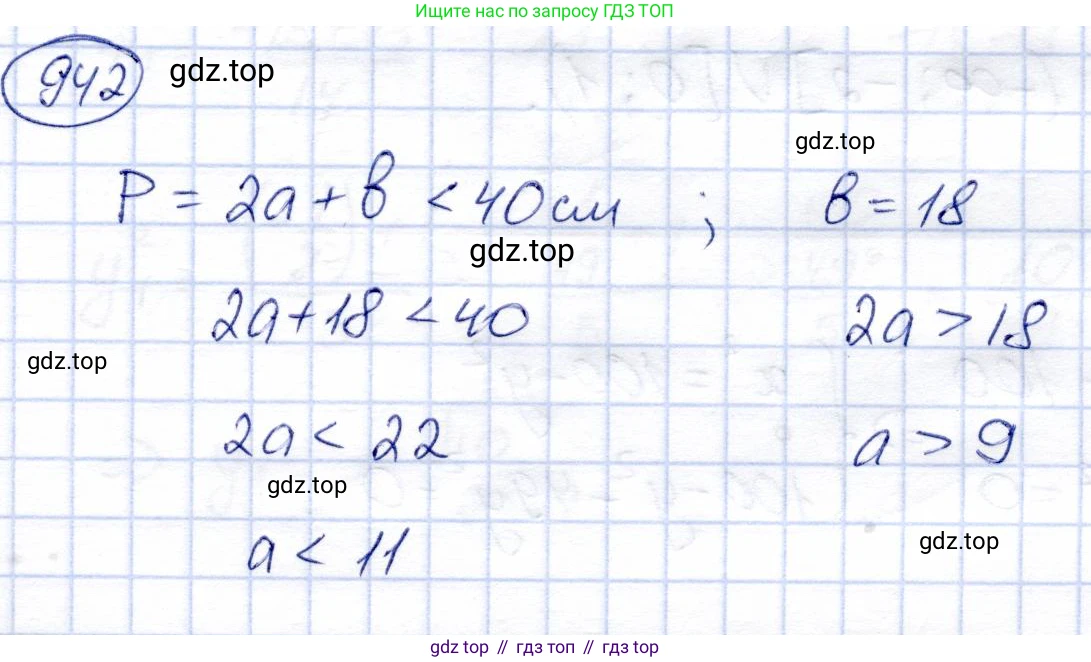 Ищите нас по запросу ГДЗ ТОП
942 gdz.top
gdz.top
P = 2a + b < 40 см ; b = 18
gdz.top
2a + 18 < 40 2a > 18
gdz.top
2a < 22 a > 9
gdz.top
a < 11
gdz.top
gdz top // гдз топ // gdz top